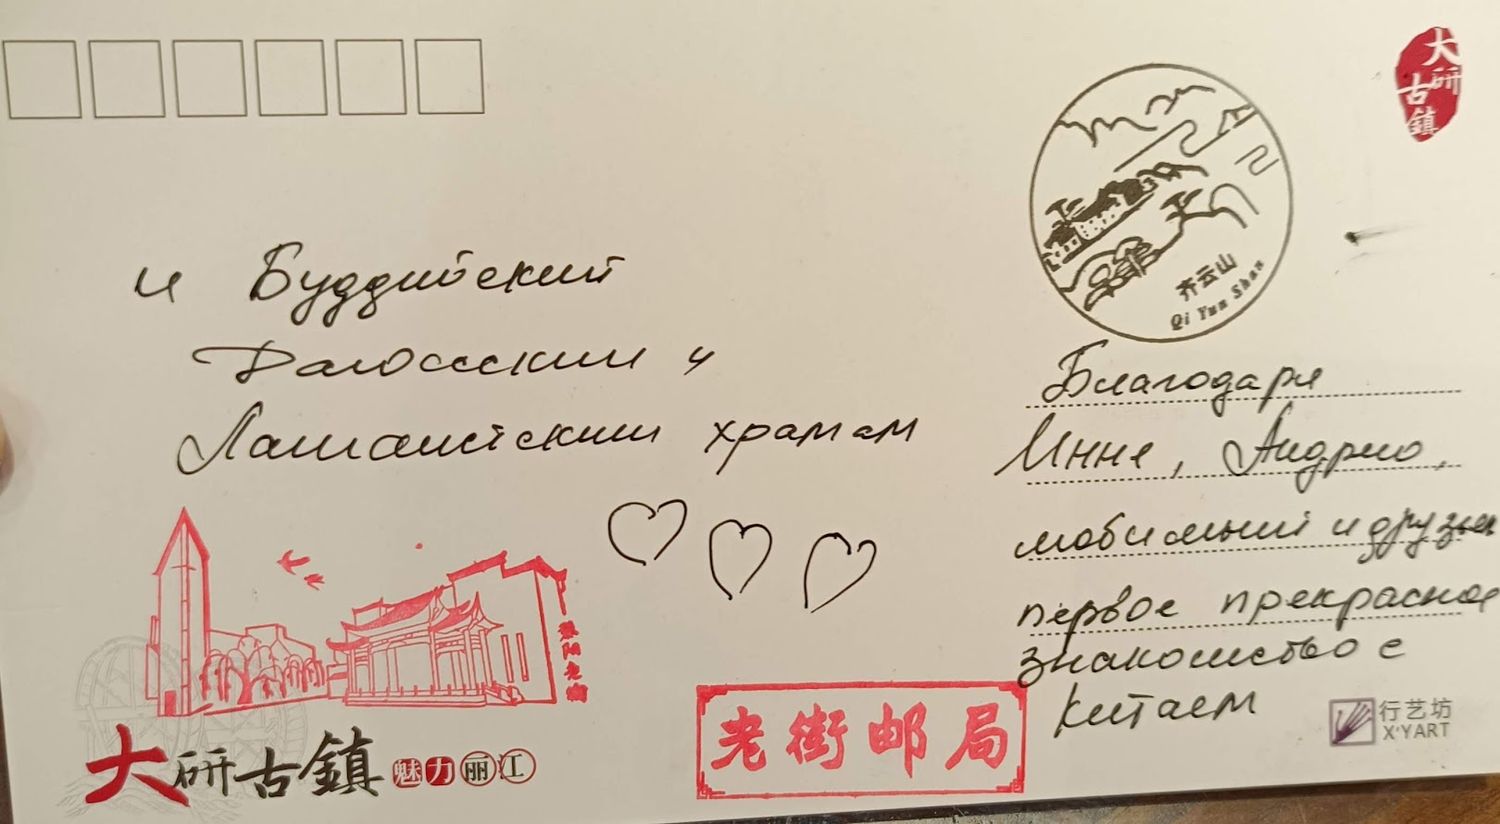 大研古鎮
齐云山
Qi Yun Shan
и Буддийский
Даосский и
Ламаистским храмам
Благодаря
Инне, Андрею,
мобильный и друзья
первое прекрасное
знакомство с
Китаем
行艺坊
X'YART
老街邮局
大研古鎮 魅力丽江